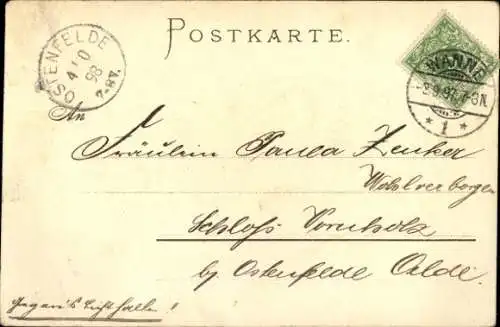 POSTKARTE.
OSTENFELDE
4 10
98
7-8V.
WANNE
3.9.97. 7-8N.
* 1 *
An
Fräulein Paula Zenker
Wohlverborgen
Schloss Vornholz
by Ostenfelde Oelde.